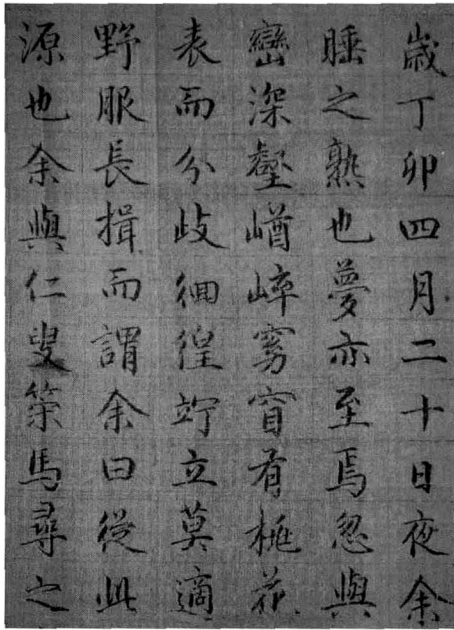 歲丁卯四月二十日夜余
睡之熟也夢亦至焉忽與
巒深壑崷崒窈窅有桃花
表而分歧徊徨竚立莫適
野服長揖而謂余曰從此
源也余與仁叟策馬尋之